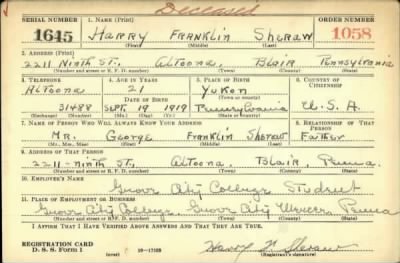 Deceased
SERIAL NUMBER 1. NAME (Print) ORDER NUMBER
1645 HARRY FRANKLIN SHERAW 1058
(First) (Middle) (Last)
2. ADDRESS (Print)
2211 NINTH ST. ALTOONA BLAIR PENNSYLVANIA
(Number and street or R. F. D. number) (Town) (County) (State)
3. TELEPHONE 4. AGE IN YEARS 5. PLACE OF BIRTH 6. COUNTRY OF CITIZENSHIP
ALTOONA 21 YUKON
DATE OF BIRTH (Town or county)
31488 SEPT. 19 1919 PENNSYLVANIA U.S.A.
(Exchange) (Number) (Mo.) (Day) (Yr.) (State or country)
7. NAME OF PERSON WHO WILL ALWAYS KNOW YOUR ADDRESS 8. RELATIONSHIP OF THAT PERSON
MR. GEORGE FRANKLIN SHERAW FATHER
(Mr., Mrs., Miss) (First) (Middle) (Last)
9. ADDRESS OF THAT PERSON
2211-NINTH ST. ALTOONA, BLAIR PENNA.
(Number and street or R. F. D. number) (Town) (County) (State)
10. EMPLOYER'S NAME
Grove City College Student
11. PLACE OF EMPLOYMENT OR BUSINESS
Grove City College, Grove City Mercer, Penna
(Number and street or R. F. D. number) (Town) (County) (State)
I AFFIRM THAT I HAVE VERIFIED ABOVE ANSWERS AND THAT THEY ARE TRUE.
REGISTRATION CARD
D. S. S. Form 1 (over) 16—17105 Harry F. Sheraw
(Registrant's signature)